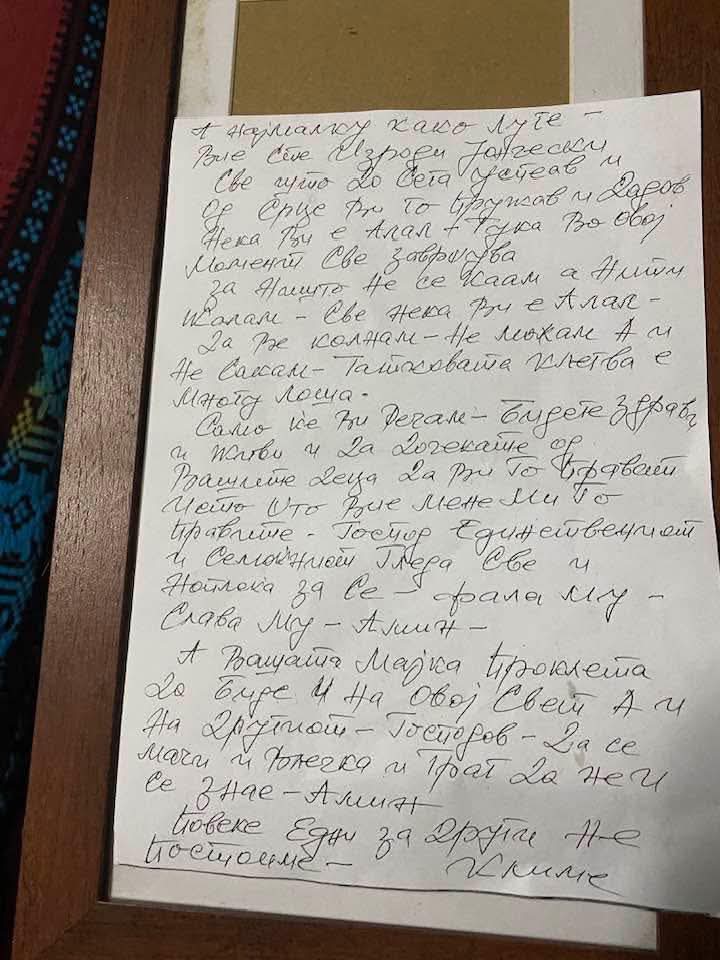 А најмалку како луѓе -
Вие сте Изроди Јанчески
Све што до Сега успеав и
од Срце Ви го пружав и дадов
Нека Ви е Алал + Тука Во Овој
момент Све завршува
за Ништо не се каам а Ниту
жалам - Све нека Ви е Алал -
да Ве колнам - не можам А и
не Сакам - Татковата клетва е
многу лоша.
Само ќе Ви речам - Бидете здрави
и живи и да дочекате од
Вашите деца да Ви го прават
Исто што Вие мене ми го
правите - Господ Единствениот
и Семоќниот Гледа Све и
за Се - фала му -
Слава му - Амин -
А Вашата Мајка проклета
да биде и на Овој Свет А и
на другиот - Господов - да се
мачи и и Грат да не и
се знае - Амин
Повеке Едни за други не
постоиме - Климе